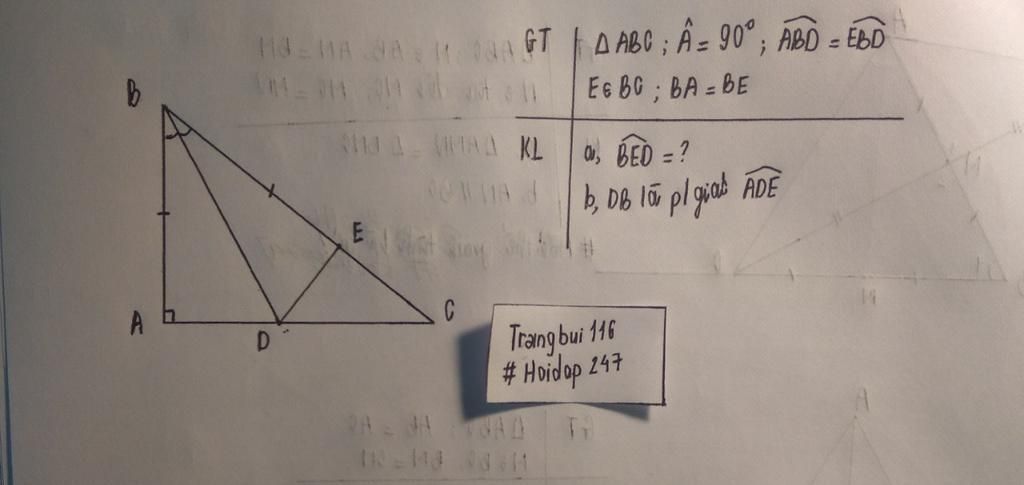 GT
Δ ABC ; Â = 90° ; ABD̂ = EBD̂
E∈ BC ; BA = BE
KL
a, BED̂ = ?
b, DB là p/giác ADÊ
B
E
A
D
C
Trangbui 116
# Hoidap 247